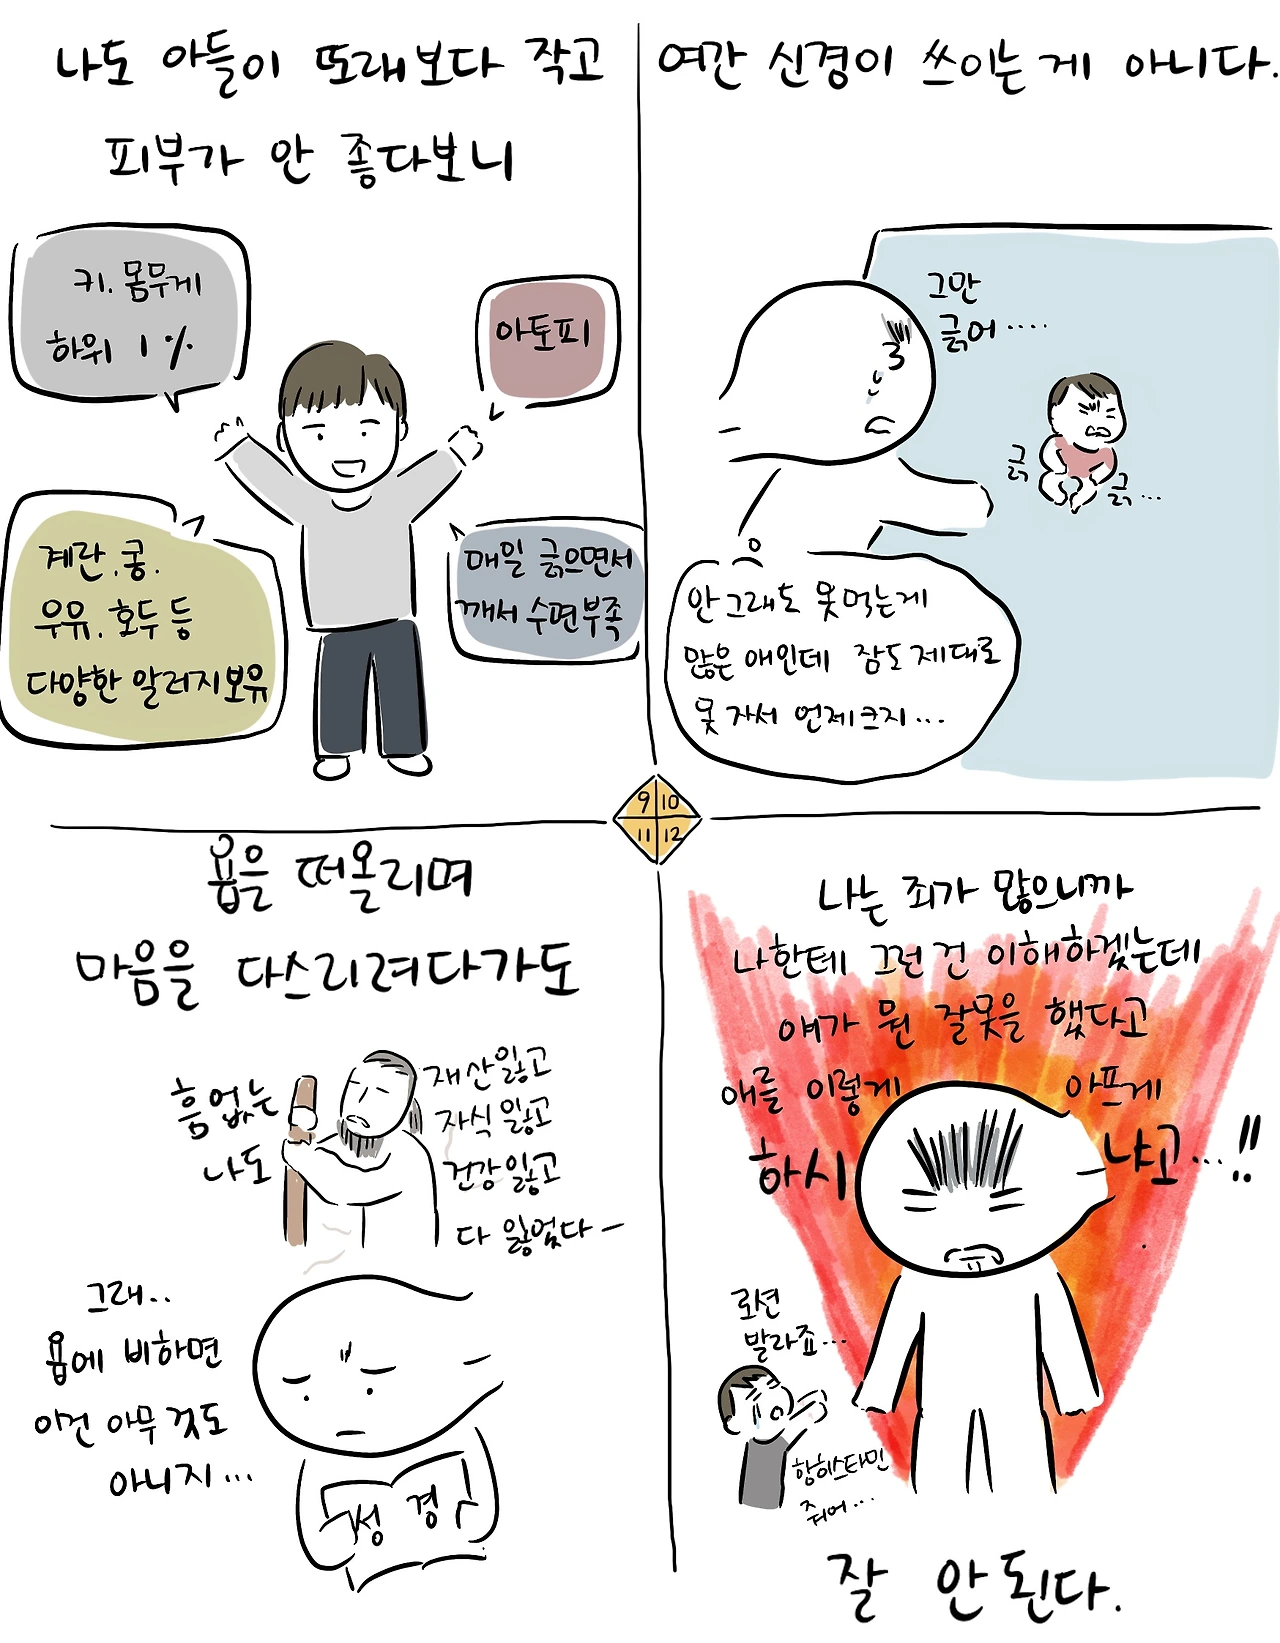 나도 아들이 또래보다 작고
피부가 안 좋다보니
키. 몸무게
하위 1%
아토피
계란. 콩.
우유. 호두 등
다양한 알러지보유
매일 긁으면서
깨서 수면부족
여간 신경이 쓰이는게 아니다.
그만
긁어....
긁
긁...
안그래도 못먹는게
많은 애인데 잠도제대로
못 자서 언제크지...
9 10
11 12
욥을 떠올리며
마음을 다스리려다가도
흠없는
나도
재산잃고
자식잃고
건강잃고
다 잃었다-
그래..
욥에 비하면
이건 아무 것도
아니지...
성경
나는 죄가 많으니까
나한테 그런건 이해하겠는데
얘가 뭔 잘못을 했다고
애를 이렇게 아프게
하시냐고...!!
로션
발라죠...
항히스타민
줘어...
잘 안된다.